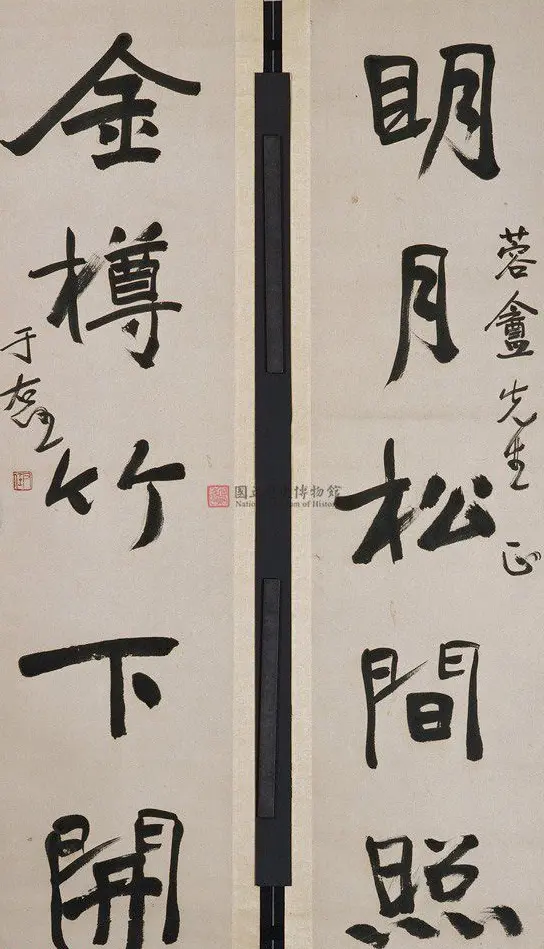 蓉盦先生 正
明月松間照
金樽竹下開
于右任
國立歷史博物館
National Museum of History